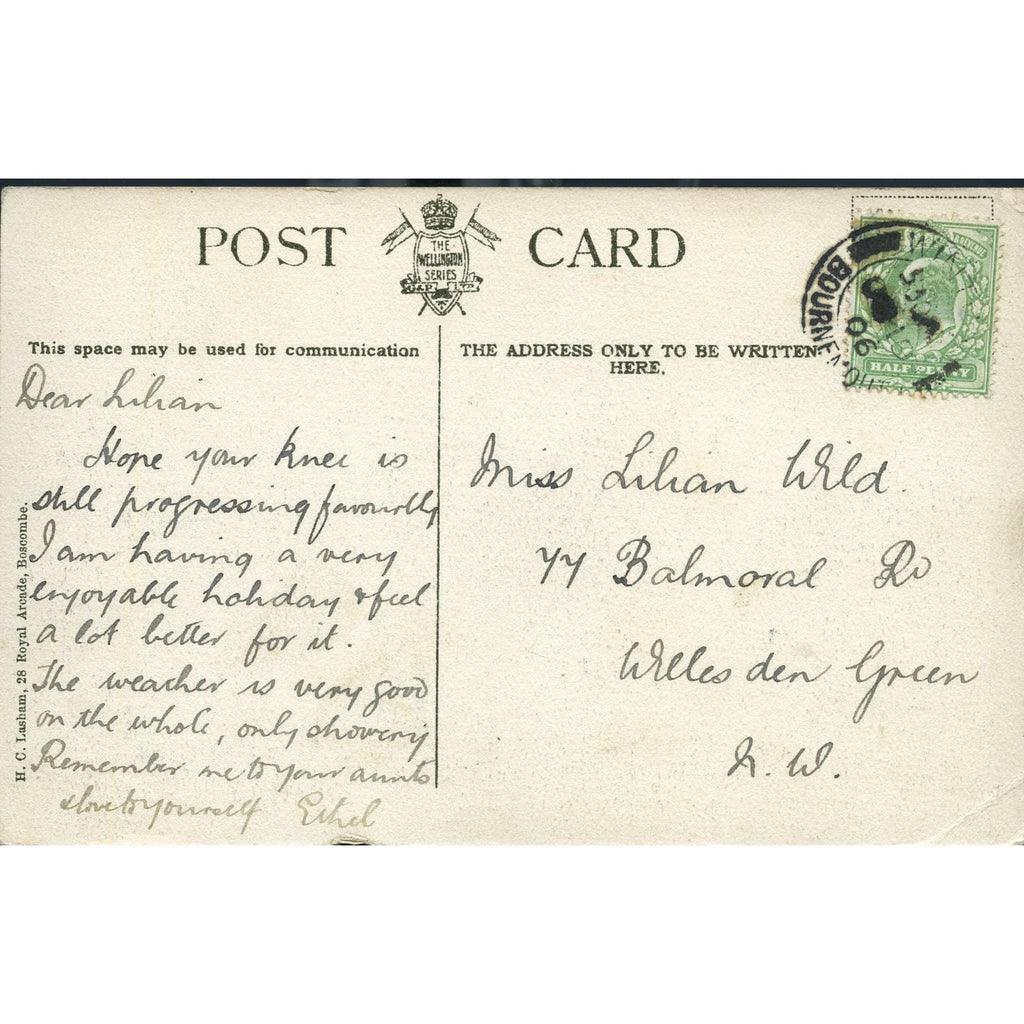 POST CARD
THE
WELLINGTON
SERIES
G&P LTD
This space may be used for communication
THE ADDRESS ONLY TO BE WRITTEN
HERE.
BOURNEMOUTH
06
HALF PENNY
Dear Lilian
Hope your knee is
still progressing favourably
I am having a very
enjoyable holiday & feel
a lot better for it.
The weather is very good
on the whole, only showery
Remember me to your aunts
& love to yourself Ethel
Miss Lilian Wild.
77 Balmoral Rd
Willesden Green
N. W.
H. C. Lasham, 28 Royal Arcade, Boscombe.